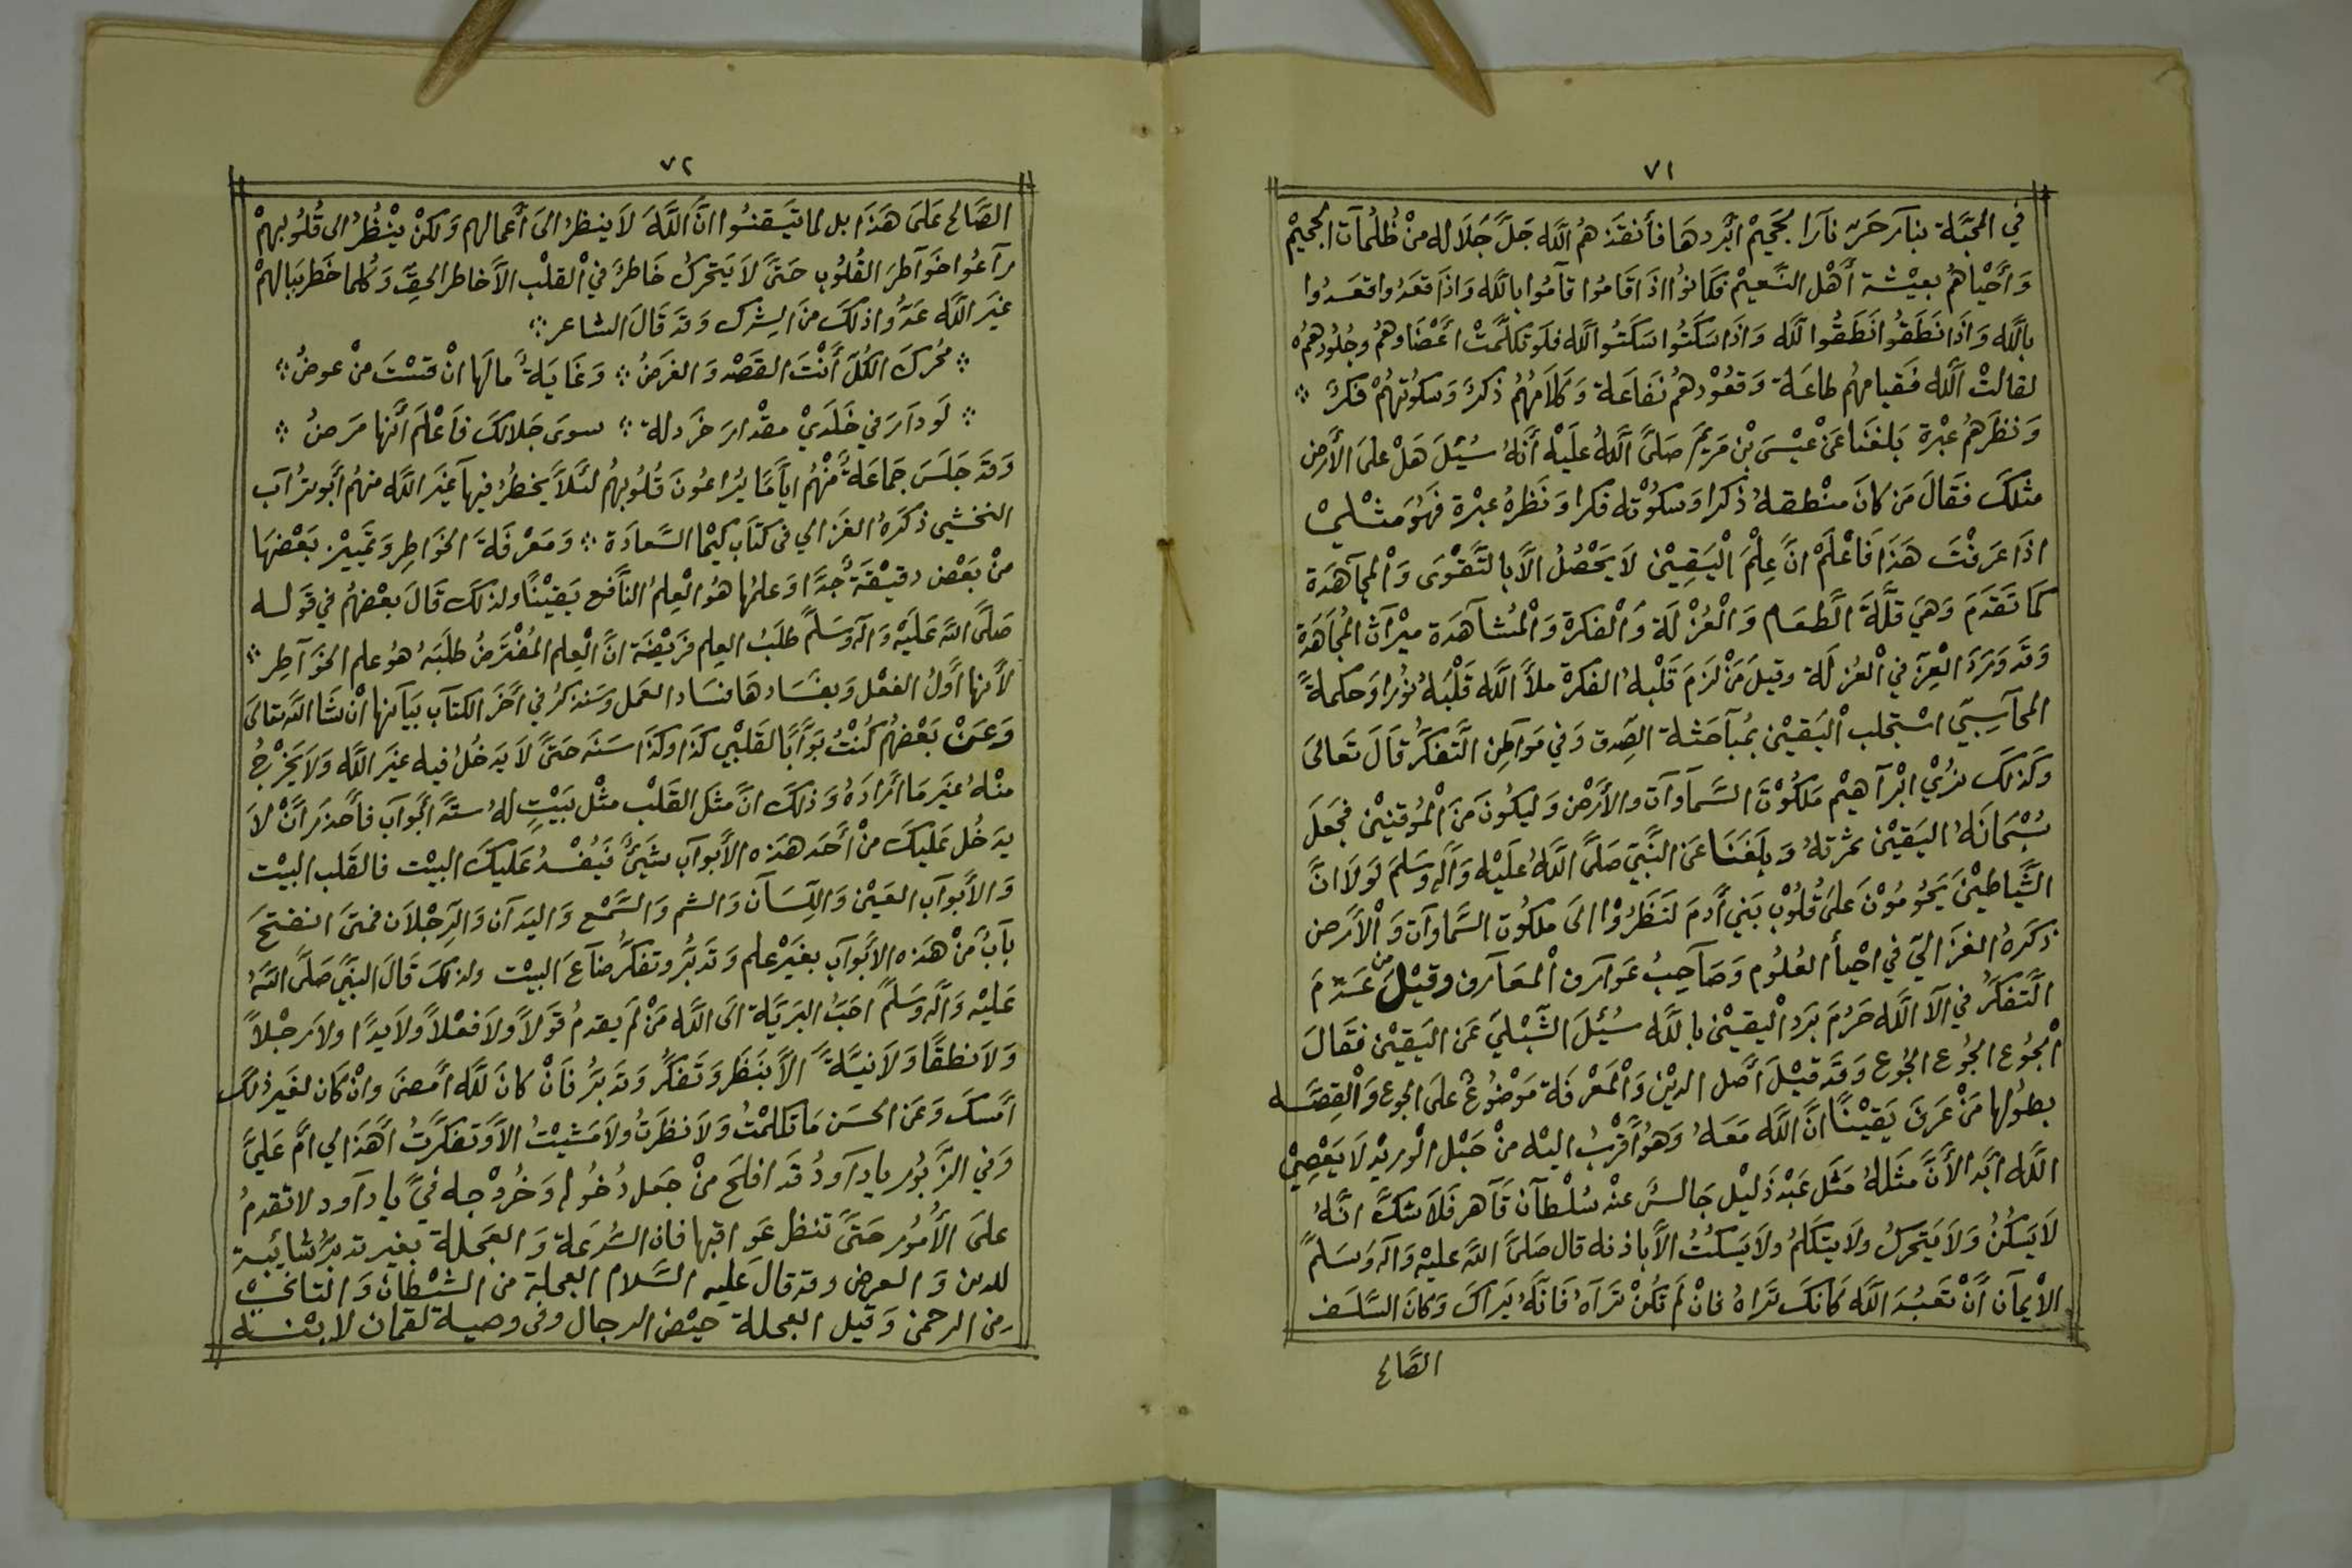 ٧١
في المحبَّة بنآر حَرّ نآرا لجَحيْم أبْردهَا فأنقذهُم اللَّه جَلَّ جَلَاله منْ ظُلُمآت الجحيْم
وَأحْيٰاهُمْ بعيْشة أَهْل النَّعيْم فكَانوُا اذَا قَامُوا قآمُوا باللَّه وَاذَا قعَدُوا قعَدُوا
باللَّه وَاذَا نَطَقُوا نَطَقُوا للَّه وَاذَا سَكَتُوا سَكَتُوا للَّه فلَو تكلَّمتْ اَعْضَاوهُمْ وجُلُودُهمُ
لقالتْ اَللَّه فقيامهُم طاعَة وَقعُوْدهُم نفَاعَة وَكَلَامهُمْ ذكرٌ وَسكُوتهُمْ فكرٌ
وَنظرَهُمْ عبْرة بَلغنَا عَنْ عيْسَى بْن مَريَم صَلَّى اللَّهُ علَيْه أنَّهُ سُئِلَ هَلْ علىَ الأرْض
مثلكَ فقَالَ مَن كانَ منْطقهُ ذكرا وَسكُوْته فكرا وَنَظرهُ عبْرة فهُوَ مثْلِيْ
اذَا عَرفْتَ هَذَا فَاعْلَمْ انَّ عِلْمَ الْيَقِيْن لَا يَحْصُلُ الَّا بالتَّقْوَى وَالْمجآهدَة
كمَا تَقدَمَ وَهيَ قلَّةَ الطعَام وَالْعُزْلَة وَالْفكرَة وَالْمُشآهَدة ميْرآثُ المجُاهَدَةِ
وَقَد وَرَدَ الْعِزّ في الْعُزلَة وقيلَ مَنْ لزَمَ قَلْبهُ الفكرَة ملأَ اللَّه قَلْبَهُ نُوْرا وَحكمةً
المحآسِبِيّ اسْتجلب الْيَقيْن بمُبآحَثة الصِّدق وَفي مَوآطِن التَّفكَّر قَالَ تَعَالىَ
وَكذلكَ نرُيْ ابْرآهيْم مَلكُوْتَ السَّمآوآت والأرْض وَليكُونَ منَ الْمُوقنيْن فجَعَلَ
سُبْحَانَهُ اليَقيْن ثمَرتهُ وَبلَغَنَا عَن النَّبِيّ صَلَّى اللَّهُ عَلَيْه وَآلهِ وَسَلمَ لَوْلَا انَّ
الشَّياطيْنَ يَحُومُوْنَ عَلىَ قُلُوْبِ بَني أدمَ لنَظرُوْا الىَ ملكُوت السَّماوآت وَالأرْض
ذكرَهُ الغزَاليّ في احْيأ العُلُوم وَصَاحِبُ عَوآرف المعَارف وقيْل مَن عَدمَ
التَّفكَّر في آلآ اللَّه حَرُمَ بَرَد اليقيْن باللَّه سُئلَ الشّبْليّ عَن اليَقيْن فقَالَ
الجُوع الجُوع الجُوع وَقَد قيْلَ أصْل الديْن وَالْمَعْرفَة مَوْضوُعٌ علىَ الجوع وَالْقِصَّه
بطُولها مَنْ عَرفَ يَقيْناً انَّ اللَّه مَعَهُ وَهوُ أقْربُ اليْه منْ حَبْل الْوريْد لَا يَعْصِيْ
اللَّه أبَدا لأَنَّ مَثَلهُ مثَل عَبْد ذَليْل جَالسٌ عنْد سُلْطآن قَآهر فَلَا شكَّ انَّهُ
لَا يَسكُنُ وَلَا يَتحرّكُ ولَا يتكَلمُ ولَا يَسكتُ الَّا باذنه قال صَلىَّ اللَّه عليْه وَآله وَسَلمْ
الْأيمَآن أَنْ تَعبُدَ اللَّه كَانكَ تَرَاهُ فانْ لَم تَكُنْ تَرَآهُ فَانَّهُ يَرَاكَ وَكانَ السَّلَف
الصَّالح
٧٢
الصَّالح عَلىَ هَذَا بل لما تيَقنُوا انَّ اللَّهَ لَا ينظرُ الىَ أعمالهم وَلكنْ ينْظُرُ الى قُلُوبهمْ
رآعُوا خوَآطرَ القُلُوب حَتَّى لَا يَتحركُ خَاطرٌ في الْقلْب الاَّ خاطر الحقّ وَكُلما خَطر ببَالهمْ
غيَر اللَّه عَدّوا ذلكَ منَ الشرك وَقد قَالَ الشاعر
محُركَ الكُلّ أنْتَ القصْد وَالغرَضُ وَغَايَةٌ مالَها انْ قسْتَ منْ عوضُ
لَو دآرَ في خَلَديْ مقْدارَ خَردلة سوىَ جَلالكَ فَاعْلَم أنَّها مَرَضُ
وَقدَ جَلَسَ جَماعَةٌ منْهُم ايآمًا يُراعُونَ قُلُوبهُم لئَلاَّ يخطرُ فيهَآ غيَر اللَّه منهُم أبُو ترُآب
النخشي ذكرهُ الغزالي فى كتَاب كيْمَا السَّعَادَة وَمَعْرفَة الخوَاطِر وَتمَييْز بَعْضهَا
منْ بَعْض دقيْقَةٌ جدَّا وَعلمُها هوُ الْعلمُ النَّافع يَقيْنًا ولذلكَ قَالَ بعْضهُم في قَوله
صَلىَّ اللَّه عَليْه وَآله وَسَلمْ طلَبُ العِلم فَريْضَة انَّ الْعِلم المُفْتَرضُ طلَبَهُ هوُ علم الخوَآطِر
لأَنها أوَّلُ الفعْل وَبفسَادهَا فسَاد العَمل وَسَنذكرُ في أخرَ الكتآب بيَآنها انْ شَا اللَّه تعَالى
وَعَنْ بَعْضهُم كُنْتُ بوّابًا لقَلْبي كذَا وكذَا سَنَه حَتىَّ لَا يَدخُلُ فيه غيَر اللَّه وَلَا يَخْرجُ
منْهُ غيَر مَا أرَادَهُ وَذلكَ انَّ مثَل القَلْب مثْل بَيْتٍ لهُ ستةَ أبْوآب فأحْذرَ انَّ لَا
يدَخُل عَليكَ منْ أحَد هَذه الأبوآب شَيئٌ فَيُفْسدُ عَليكَ البيْت فالقلَب البيْت
وَالأبوآب العَيْن وَاللّسَآن وَالشم وَالسَّمْع وَاليَدآن وَالّرجْلاَن فمتىَ انفتحَ
بآبٌ منْ هَذه الأبْوآب بغَيْر علم وَتَدَبُّر وتفكَّر ضآعَ البيْت ولذلكَ قَالَ النَبِّيَ صَلىَّ اللَّهُ
عَليْه وَآله وَسَلمْ احَبُ البَريَّة الَى اللَّه مَنْ لَم يقدمُ قَولَاً ولَا فعْلَاً ولَا يدًا ولَا رجْلاً
وَلَا نطقًا وَلَا نيَّةً الاَّ بنَظَر وَتَفكُّر وَتدَبرُّ فَانْ كانَ للَّه أمْضىَ وانْ كَان لغيَر ذلكَ
أمْسكَ وَعَن الحَسَن مَا تكَلمْتُ وَلَا نظَرتُ ولَا مَشيْتُ الاَّ وَتفكَّرتُ أهَذَا لي امَّ عَليَّ
وَفي الزَّبُور يا دآودُ قَد افلَحَ منْ جَعَل دُخُوله وَخُرُوْجه فيَّ يا دآود لا تقدمُ
علىَ الأُمُور حَتَّىَ تنظر عَواقبها فان السُّرعَة وَالعَجلة بغير تدبَّر شائبة
للدين وَالعرض وقد قالَ عَليه السَّلام العجلة من الشيْطان وَالتانيْ
من الرحمن وَقيل العجلة حيْض الرجال وفى وصية لقمان لابْنه